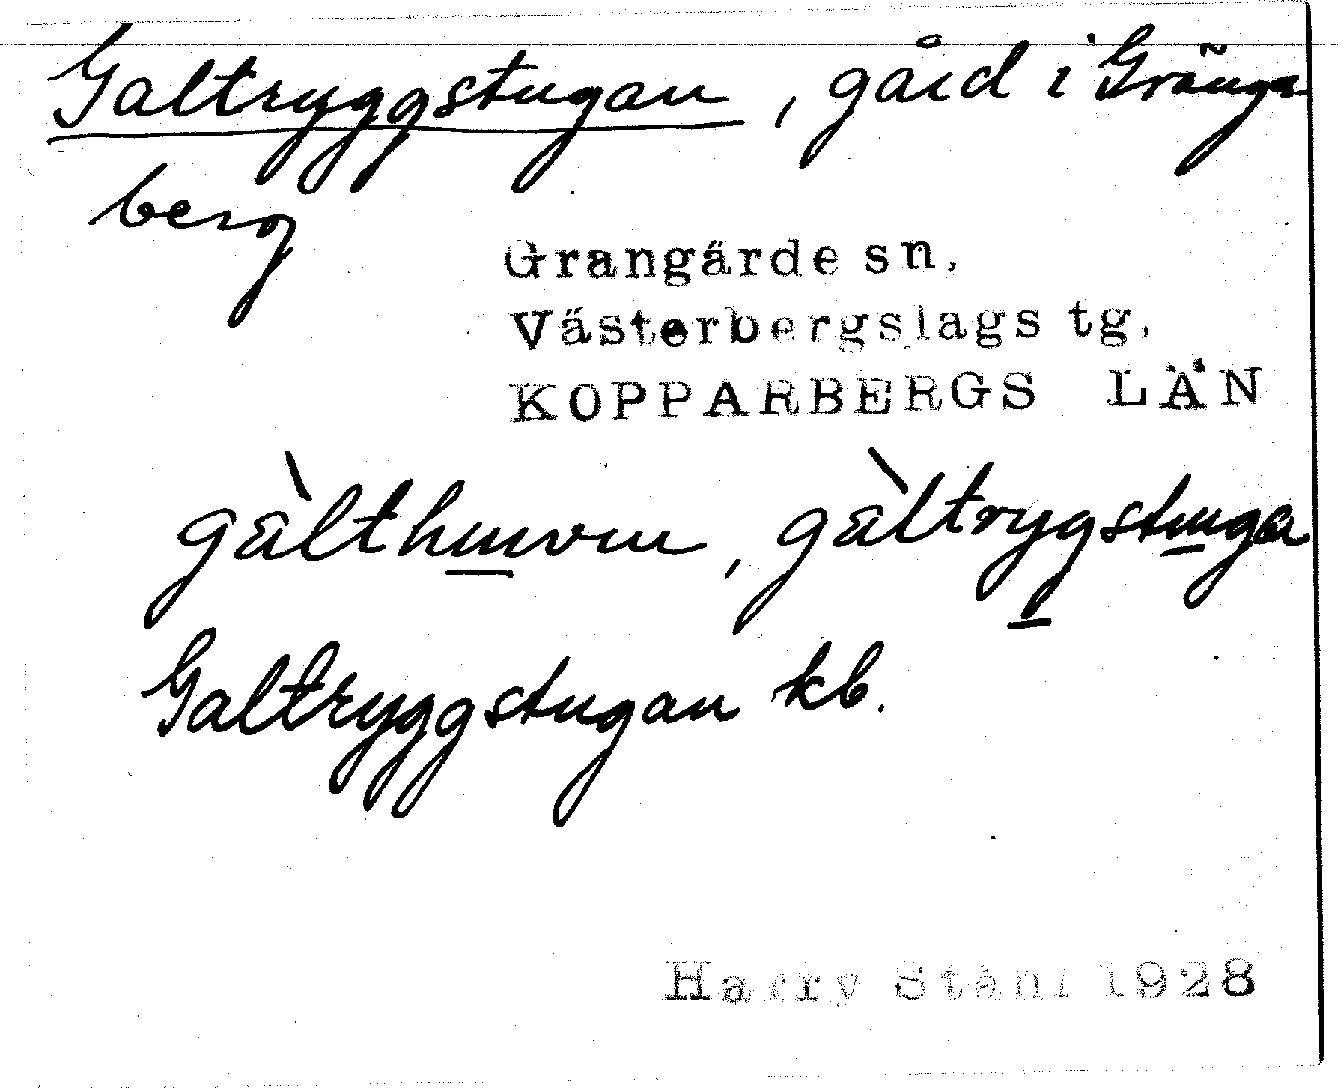 Galtryggstugan, gård i Gränges
berg
Grangärde sn,
Västerbergslags tg,
KOPPARBERGS LÄN
gàlthuvu, gàltrygstuga
Galtryggstugan kb.
Harry Ståhl 1928